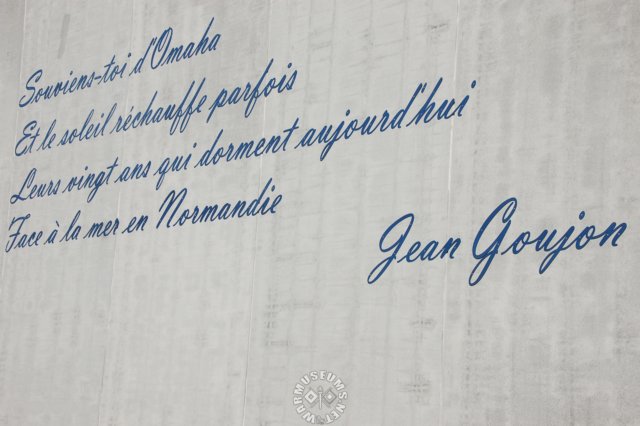 Souviens-toi d'Omaha
Et le soleil réchauffe parfois
Leurs vingt ans qui dorment aujourd'hui
Face à la mer en Normandie
Jean Goujon
WARMUSEUMS.NET